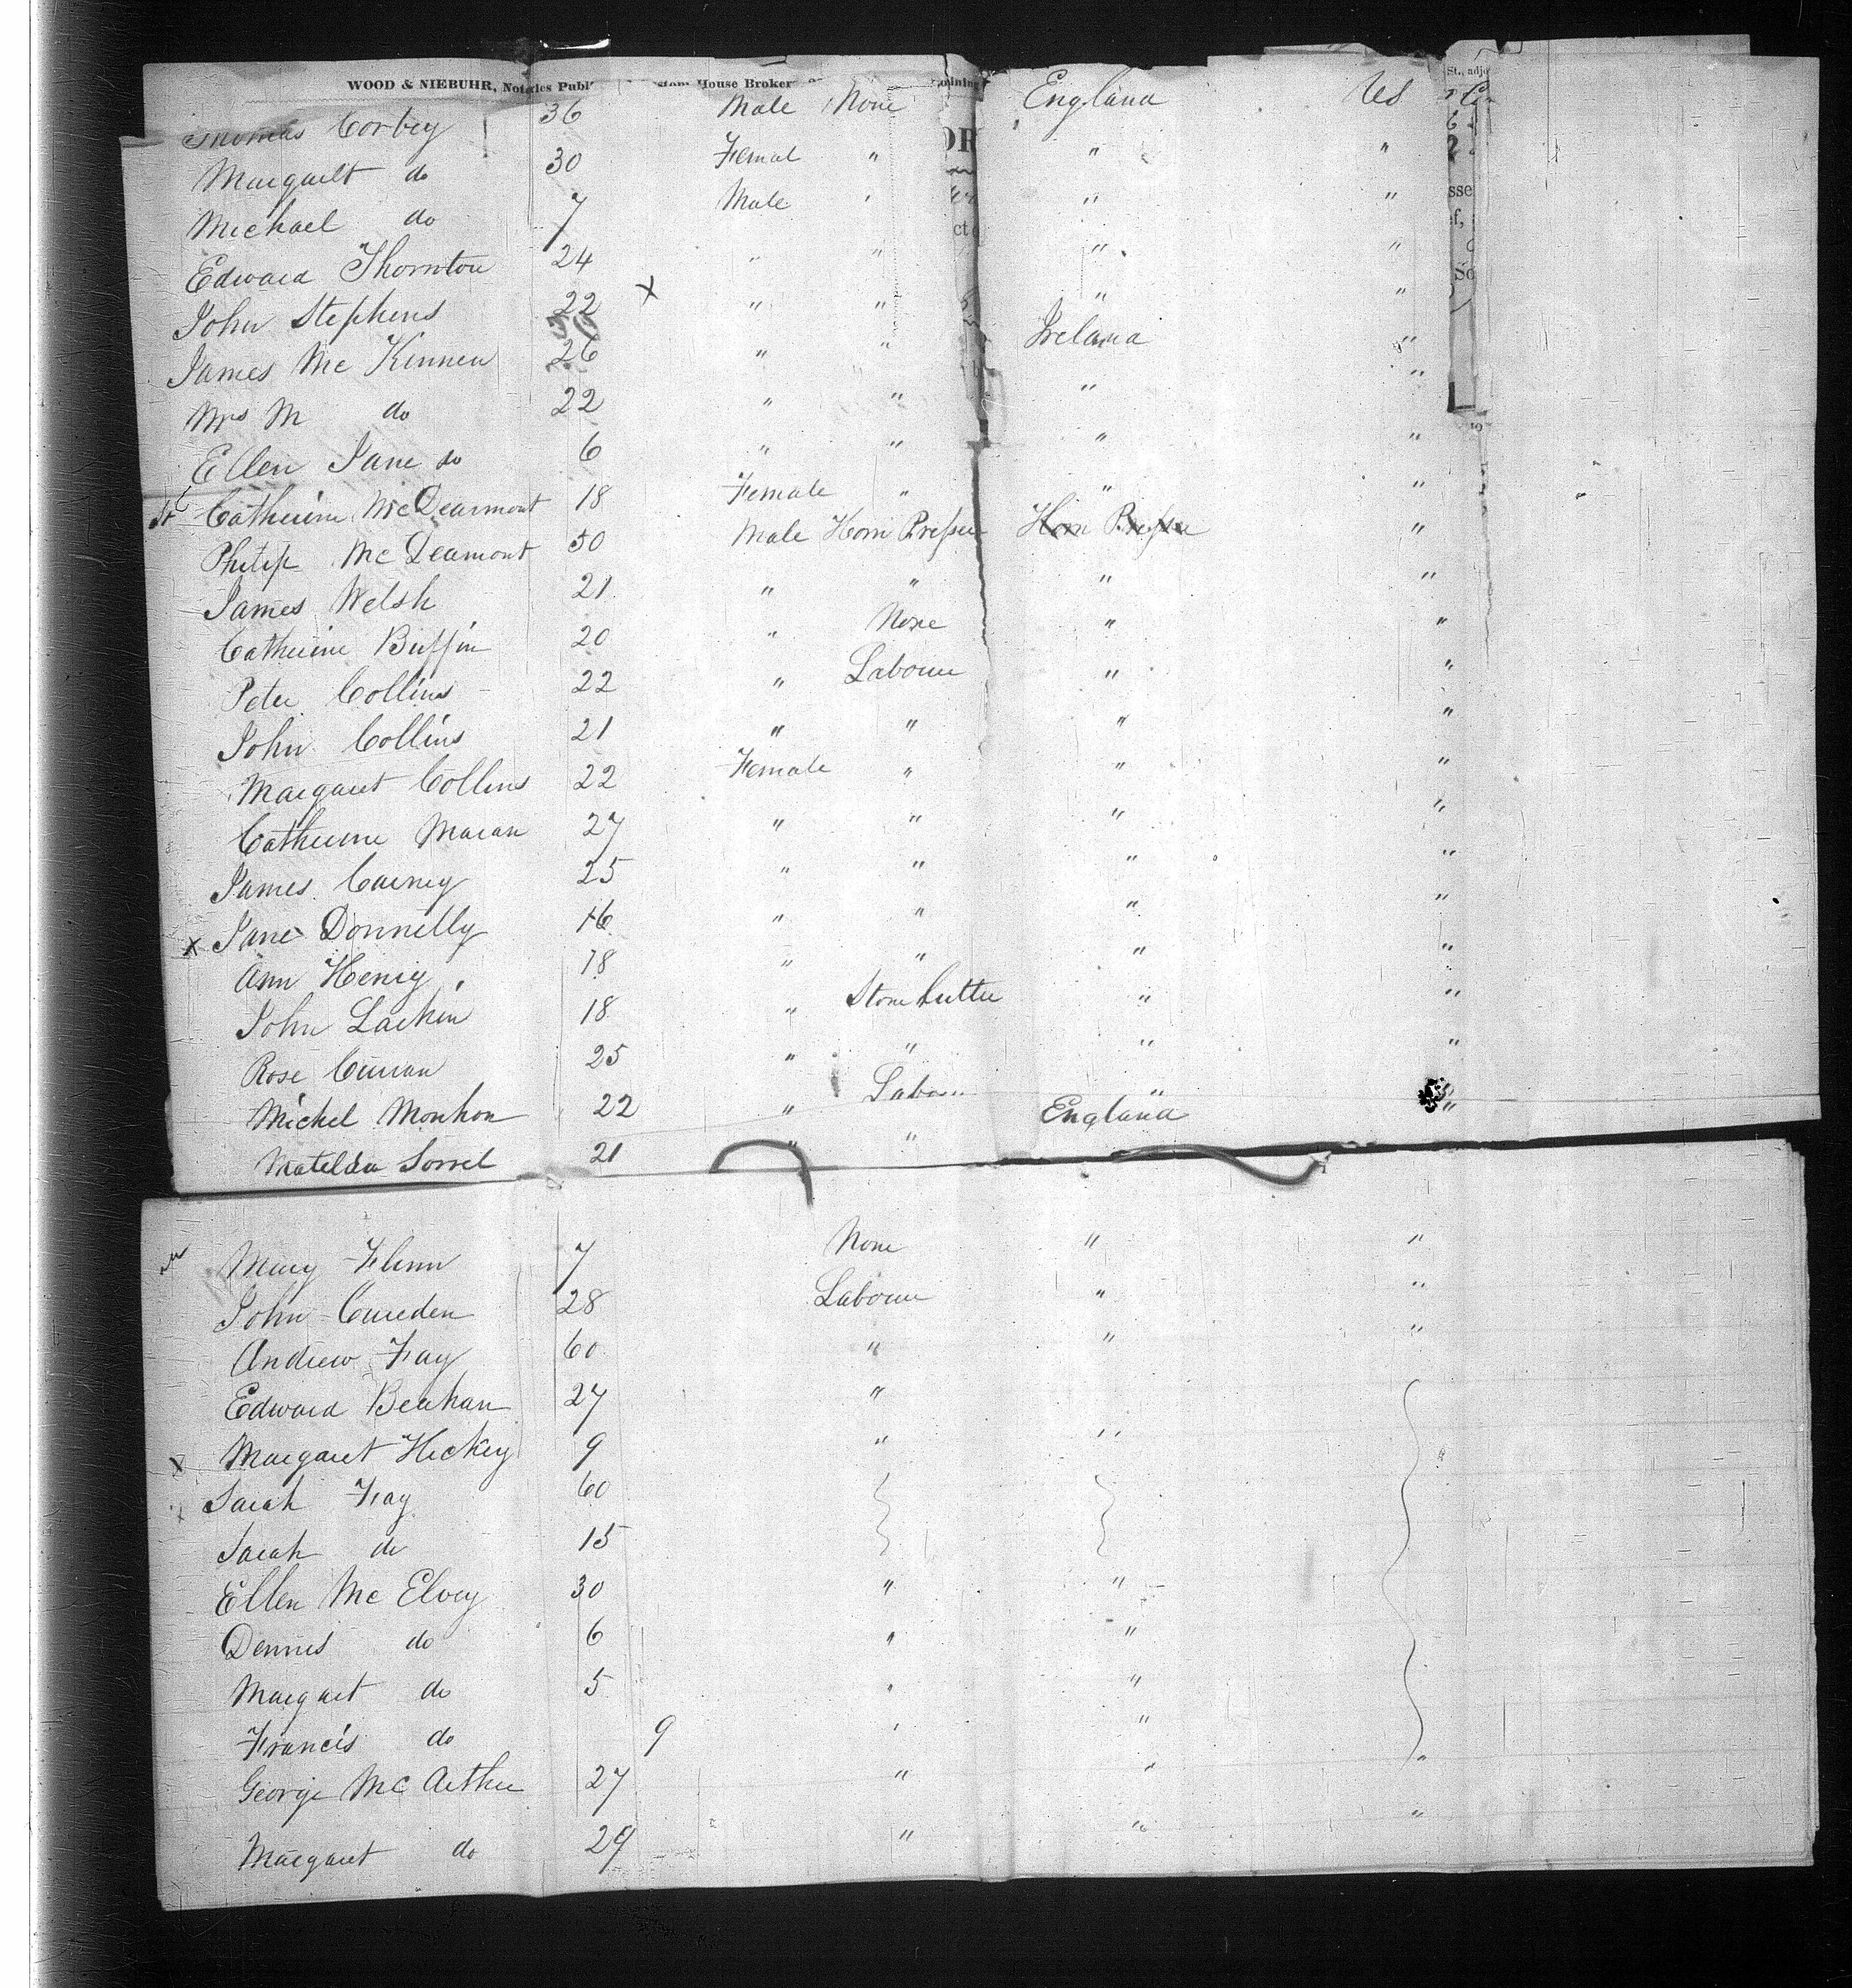 WOOD & NIEBUHR, Notaries Publi House Broker
Thomas Corbey 36 Male None England US
Margarett do 30 Femal " " "
Michael do 7 Male " " "
Edward Thornton 24 " " " "
John Stephens 22 X " " " "
James Mc Kinnen 26 " " Ireland "
Mrs M do 22 " " " "
Ellen Jane do 6 " " " "
Catherine McDearmont 18 Female " " "
Philip McDeamont 50 Male Horn Presser Horn Presser "
James Welsh 21 " " " "
Catherine Buffin 20 " None " "
Peter Collins 22 " Labourer " "
John Collins 21 " " " "
Margaret Collins 22 Female " " "
Catherine Maran 27 " " " "
James Carney 25 " " " "
X Jane Donnelly 16 " " " "
Ann Henry 18 " " " "
John Larkin 18 " Stone Cutter " "
Rose Curran 25 " " " "
Michel Monhon 22 " Labour " "
Matilda Sorrel 21 " " England "
Mary Flinn 7 None " "
John Cureden 28 Labourer " "
Andrew Fay 60 " " "
Edward Beahan 27 "
X Margaret Hickey 9 " "
X Sarah Fay 60
Sarah do 15
Ellen Mc Elvey 30 " "
Dennis do 6 " "
Margart do 5 " "
Francis do 9 " "
George Mc Arthur 27 " " "
Margaret do 29 " " "